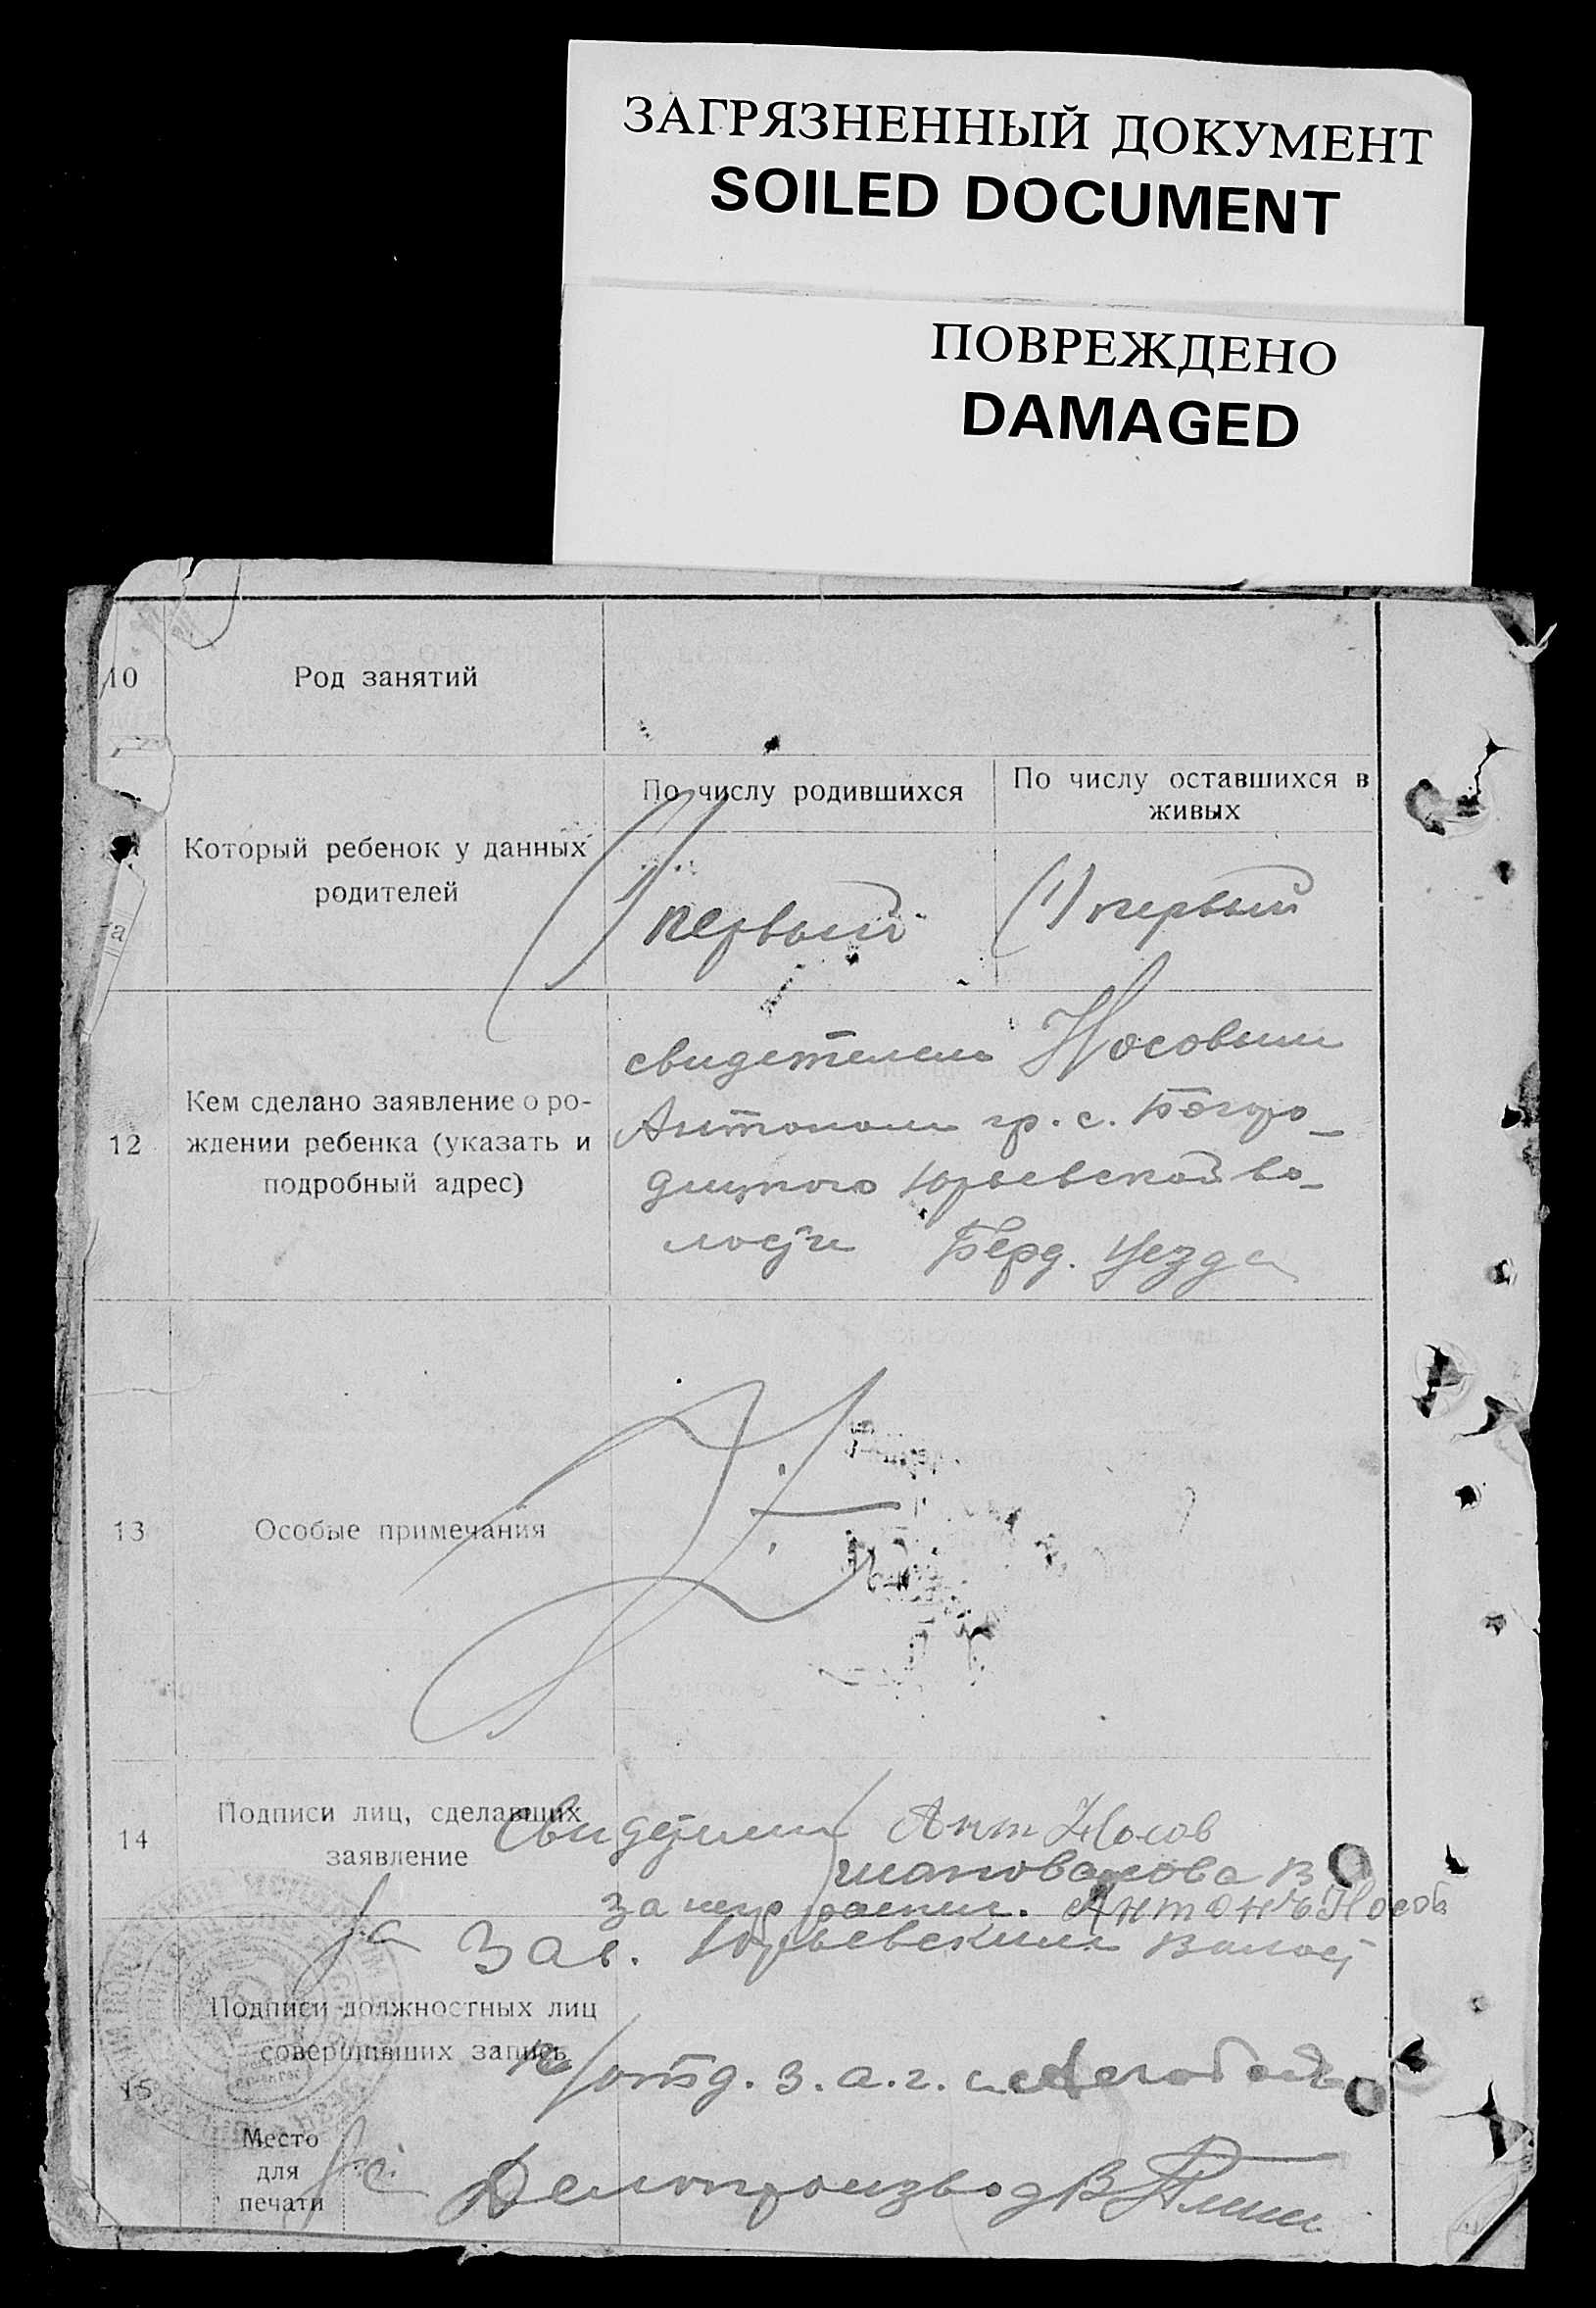 ЗАГРЯЗНЕННЫЙ ДОКУМЕНТ
SOILED DOCUMENT
ПОВРЕЖДЕНО
DAMAGED
10
Род занятий
Который ребенок у данных
родителей
По числу родившихся
По числу оставшихся в
живых
первый
(1) первый
12
Кем сделано заявление о ро-
ждении ребенка (указать и
подробный адрес)
свидетелем Носовым
Антоном гр. с. Богоро-
дицкого Юрьевской во-
лости Берд. Уезда
13
Особые примечания
14
Подписи лиц, сделавших
заявление
Свидетели Ант Носов
Шаповалова В
за неур распис. Антонъ Носовъ
Зав. Юрьевским Волост
15
Подписи должностных лиц
совершивших запись
п/отд. з.а.г.с.
Место
для
печати
Делопроизвод